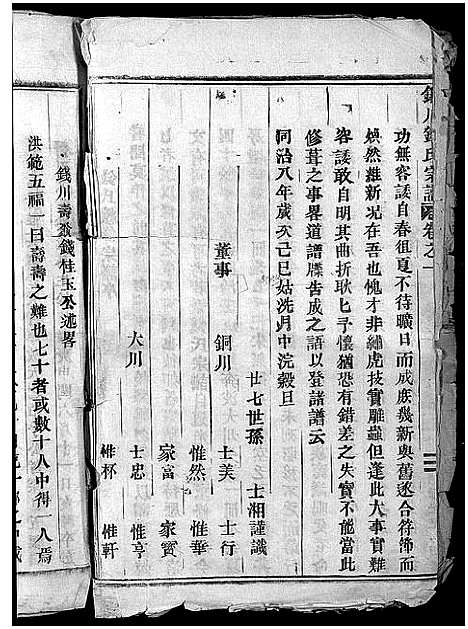 錢川錢氏宗譜 卷之一
功無容諉自春徂夏不待曠日而成庶幾新與舊遂合符飾而
煥然維新況在吾也愧才非繡虎技實雕蟲但逢此大事實難
容諉敢自明其曲折耿乚予懷猶恐有錯差之失實不能當此
修葺之事畧道譜牒告成之語以登諸譜云
同治八年歲次己巳姑洗月中浣穀旦
廿七世孫 士湘謹識
董事 銅川 士美 士行
惟然 惟華
家富 家寶
大川 士忠 惟亨
惟杯 惟軒
錢川壽裘錢桂玉公述畧
洪範五福一曰壽壽之難也七十者或數十人中得一人焉